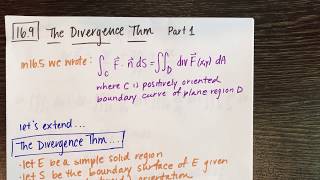 16.9 The Divergence Thm Part 1
in 16.5 we wrote: ∫_C F⃗ · n⃗ ds = ∬_D div F⃗(x,y) dA
where C is positively oriented
boundary curve of plane region D
let's extend...
The Divergence Thm...
· let E be a simple solid region
· let S be the boundary surface of E given
orientation